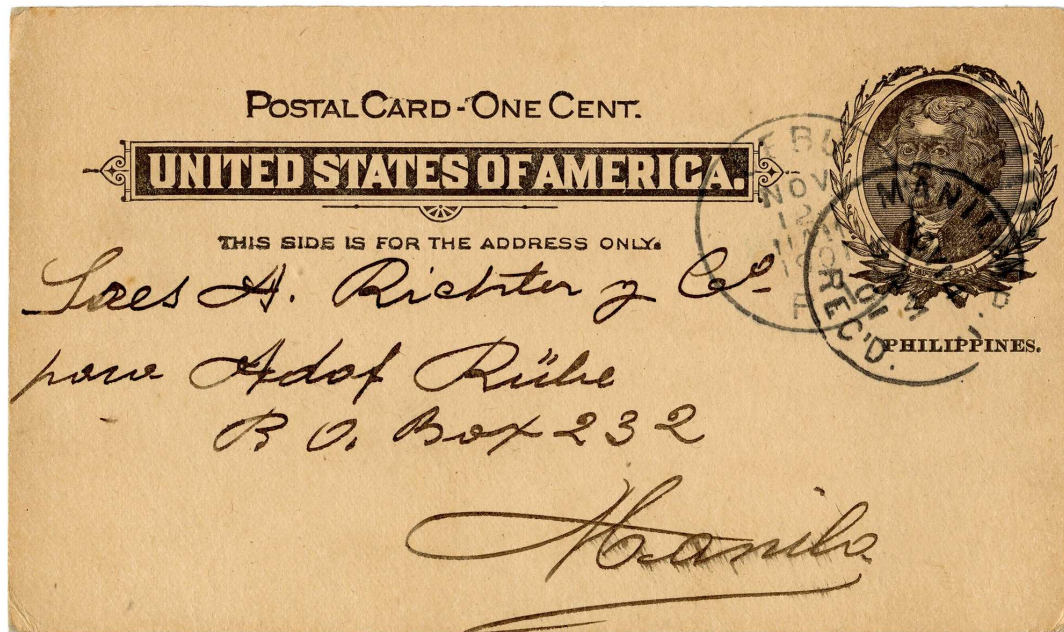 POSTAL CARD - ONE CENT.
UNITED STATES OF AMERICA.
THIS SIDE IS FOR THE ADDRESS ONLY.
JEFFERSON
PHILIPPINES.
NOV
12
MANILA
REC'D.
A. Richter y Co
para Adof Rübe
P. O. Box 232
Manila